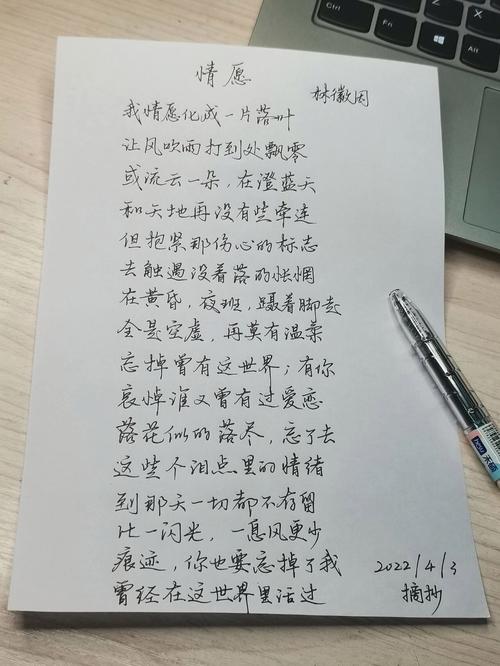 情愿
林徽因
我情愿化成一片落叶
让风吹雨打到处飘零
或流云一朵，在澄蓝天
和天地再没有些牵连
但抱紧那伤心的标志
去触遇没着落的怅惘
在黄昏，夜班，蹑着脚走
全是空虚，再莫有温柔
忘掉曾有这世界；有你
哀悼谁又曾有过爱恋
落花似的落尽，忘了去
这些个泪点里的情绪
到那天一切都不存留
比一闪光，一息风更少
痕迹，你也要忘掉了我
曾经在这世界里活过
2022/4/3
摘抄